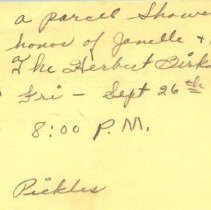 a parcel Showe
honor of Janelle +
The Herbert Birks
Fri - Sept 26th
8:00 P.M.
Pickles